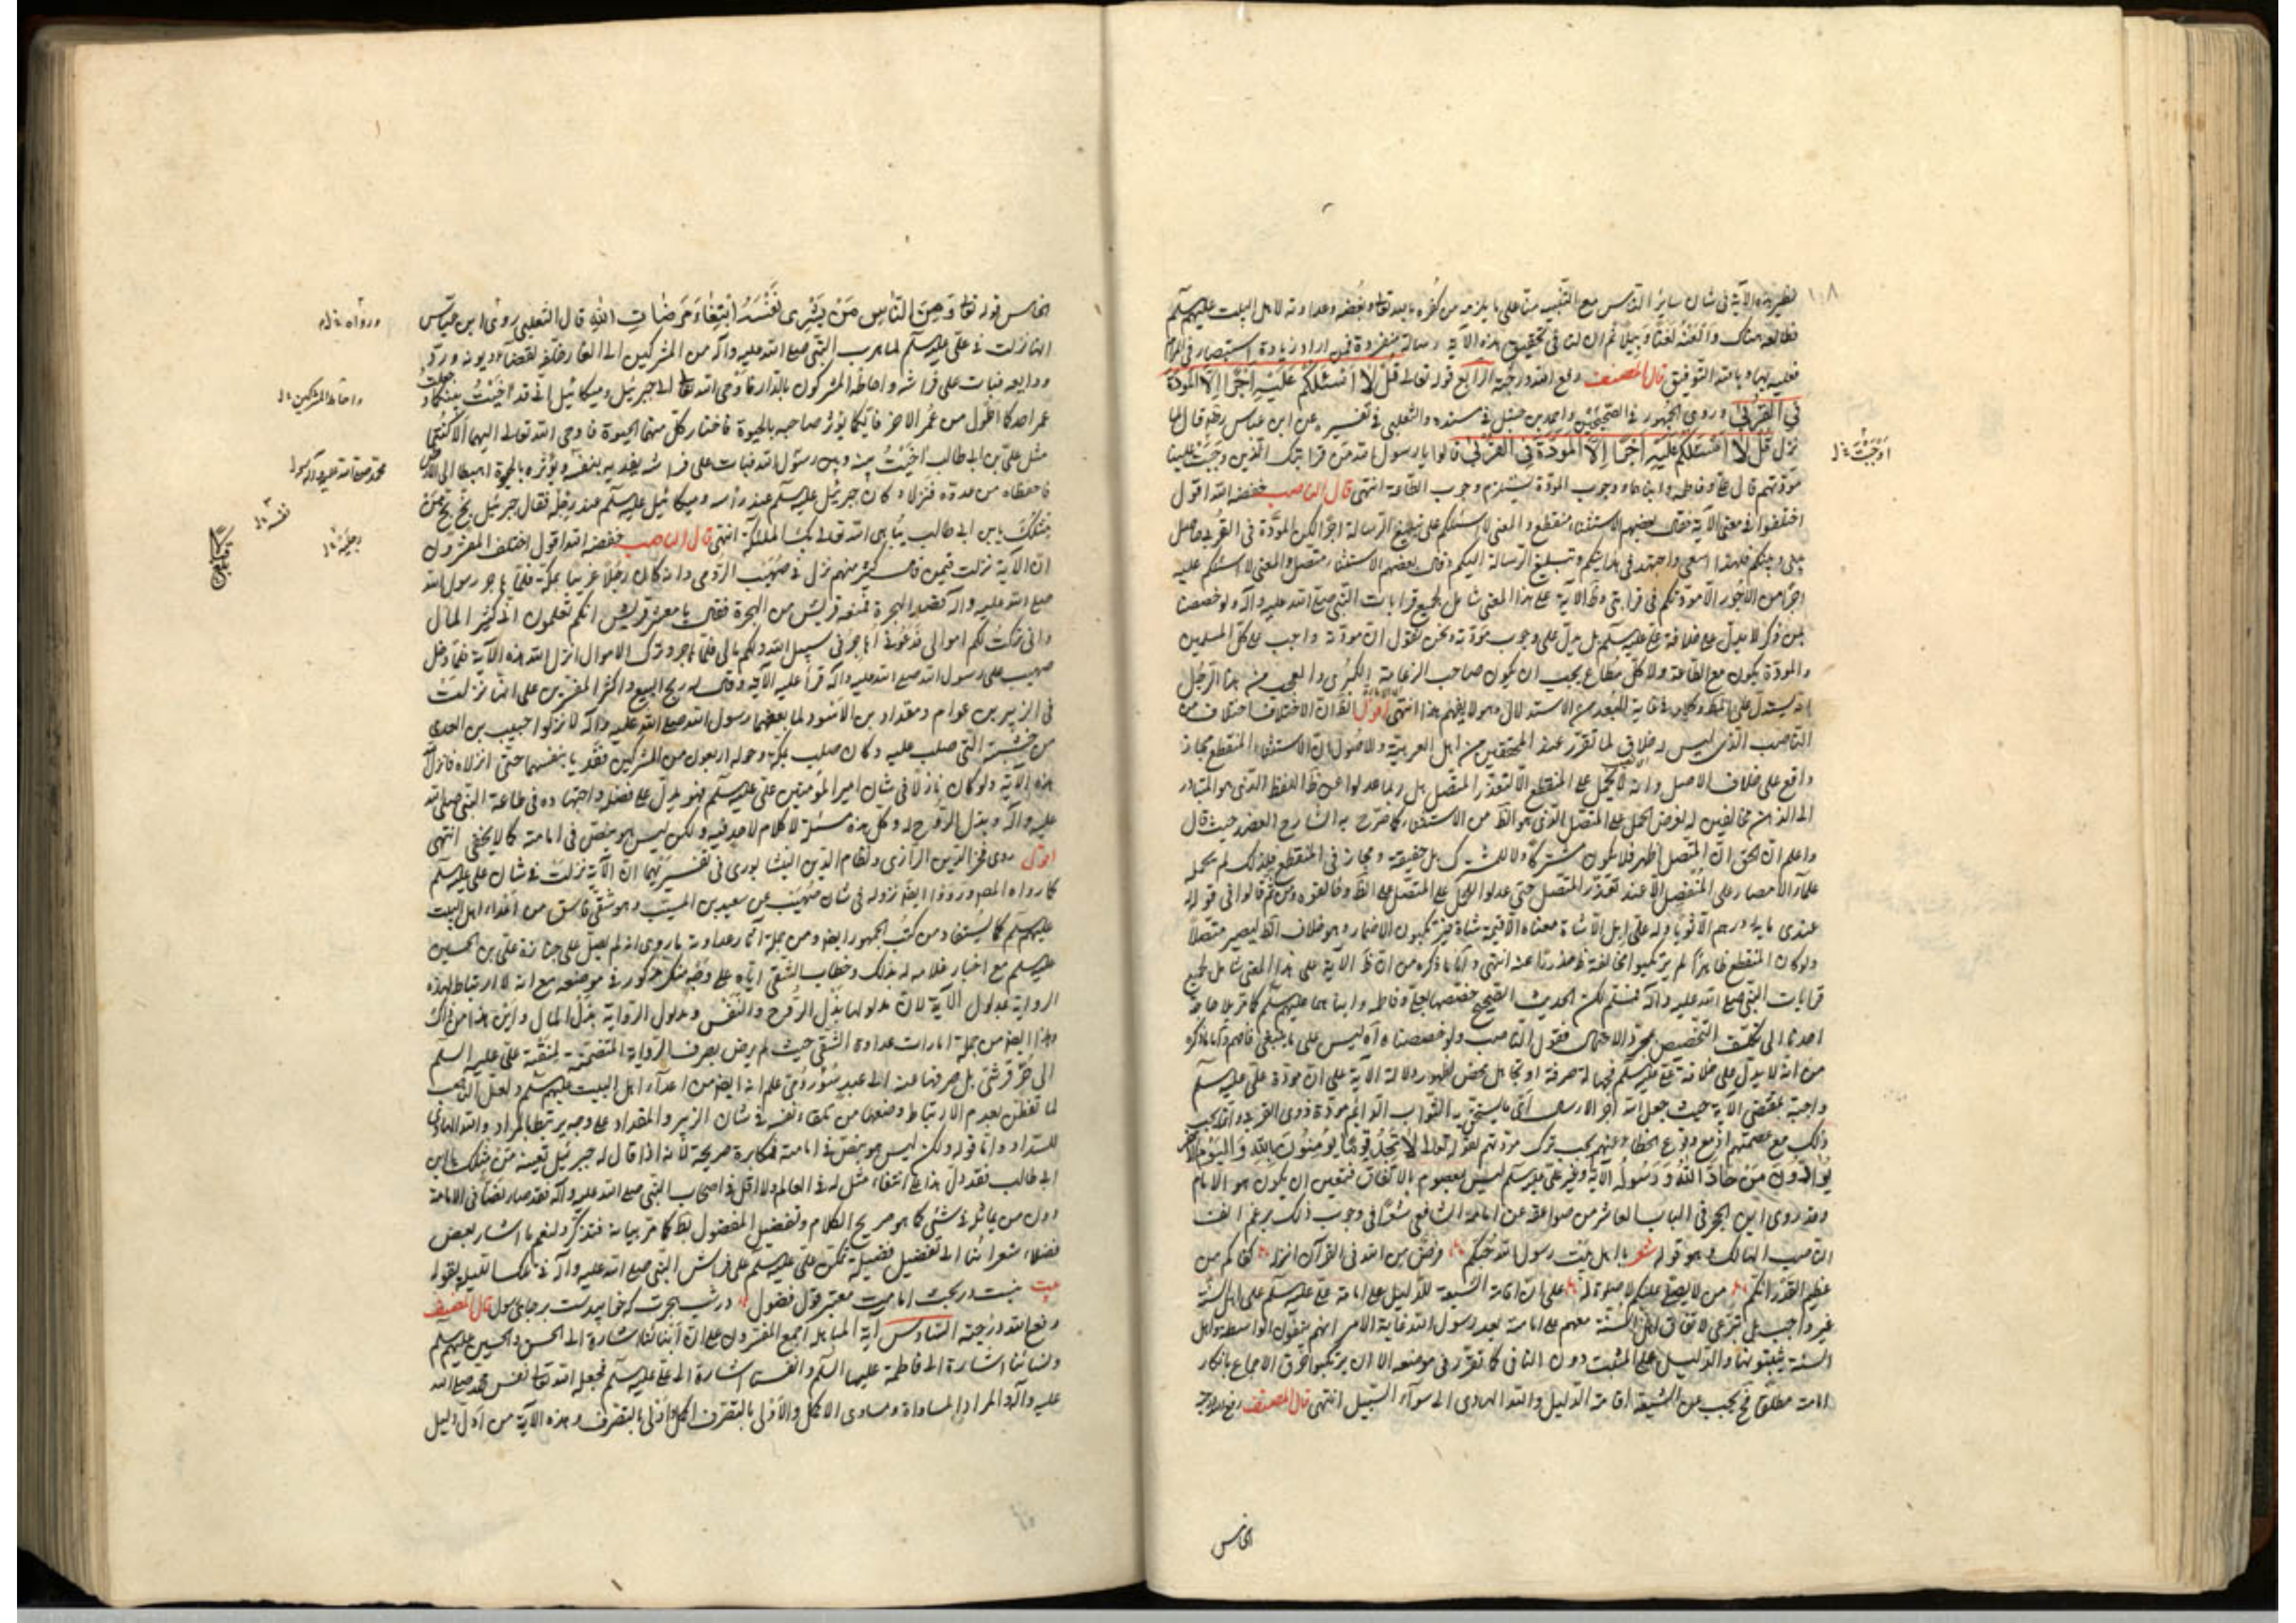 ١٠٨
لهذه الآية في شأن سائر الناس مع التنبيه منا على ما يلزمه من كفره بالله تعالى وبغضه وعداوته لاهل البيت عليهم السلم
فطالعه هناك والعنه لعنا وبيلا ثم ان لنا في تحقيق هذه الآية رسالة منفردة فمن اراد زيادة استبصار في المرام
فعليه بها وبالله التوفيق قال المصنف رفع الله درجته الرابع قوله تعالى قل لا اسئلكم عليه اجرا الا المودة
في القربى وروى الجمهور في الصحيحين واحمد بن حنبل في مسنده والثعلبي في تفسيره عن ابن عباس رضه قال لما
نزل قل لا اسئلكم عليه اجرا الا المودة في القربى قالوا يا رسول الله من قرابتك الذين وجبت علينا
مودتهم قال علي وفاطمه وابناهما ووجوب المودة يستلزم وجوب الطاعة انتهى قال الناصب خفضه الله اقول
اختلفوا في معنى الآية فقال بعضهم الاستثناء منقطع والمعنى لا اسئلكم على تبليغ الرسالة اجرا لكن المودة في القربى حاصل
بيني وبينكم فلهذا اسعى واجتهد في هدايتكم وتبليغ الرسالة اليكم وقال بعضهم الاستثناء متصل والمعنى لا اسئلكم عليه
اجرا من الاجور الا مودتكم في قرابتي وظ الآية على هذا المعنى شامل لجميع قرابات النبي صلى الله عليه وآله ولو خصصنا
بمن ذكر لا يدل على خلافة علي عليه السلم بل يدل على وجوب مودته ونحن نقول ان مودته واجب على كل المسلمين
والمودة يكون مع الطاعة ولا كل مطاع يجب ان يكون صاحب الزعامة الكبرى والعجب من هذا الرجل
انه يستدل على المط وكلامه في غاية البعد من الاستدلال وهو لا يفهم هذا انتهى اقول الظ ان الاختلاف اختلاف من
الناصب الذي ليس له خلاق لما تقرر عند المحققين من اهل العربية والاصول ان الاستثناء المنقطع مجاز
واقع على خلاف الاصل وانه لا يحمل على المنقطع الا لتعذر المتصل بل ربما عدلوا عن ظ اللفظ الذي هو المتبادر
الى الذهن مخالفين له لغرض الحمل على المتصل الذي هو الظ من الاستثناء كما صرح به الشارح العضد حيث قال
واعلم ان الحق ان المتصل اظهر فلا يكون مشتركا ولا للمشترك بل حقيقة ومجاز في المنقطع فلذلك لم يحمله
علماء الامصار على المنفصل الا عند تعذر المتصل حتى عدلوا للحمل على المتصل عن الظ وخالفوه ومن ثم قالوا في قوله
عندي مائة درهم الا ثوبا وله علي ابل الا شاة معناه الا قيمة شاة فيرتكبون الاضمار وهو خلاف الظ ليصير متصلا
ولو كان المنقطع ظاهرا لم يرتكبوا مخالفة ظ حذرا عنه انتهى واما ما ذكره من ان ظ الآية على هذا المعنى شامل لجميع
قرابات النبي صلى الله عليه وآله فمسلم لكن الحديث الصحيح خصصها بعلي وفاطمه وابناهما عليهم السلم كما مر بلا حاجة
احدنا الى تكلف التخصيص بمجرد الاحتمال فقول الناصب ولو خصصناه آه ليس على ما ينبغي فافهم واما ما ذكره
من انه لا يدل على خلافة علي عليه السلم فجهالة صرفة او تجاهل محض لظهور دلالة الآية على ان مودة علي عليه السلم
واجبة بمقتضى الآية حيث جعل الله اجر الارسال الى ما يستحق به الثواب الدائم مودة ذوي القربى وانما يجب
ذلك مع عصمتهم اذ مع وقوع الخطاء عنهم يجب ترك مودتهم لقوله تعالى لا تجد قوما يؤمنون بالله واليوم الآخر
يوادون من حاد الله ورسوله الآية وغير علي عليه السلم ليس بمعصوم بالاتفاق فتعين ان يكون هو الامام
وقد روى ابن الحجر في الباب العاشر من صواعقه عن امامه الشافعي شعرا في وجوب ذلك برغم انف
الناصب الهالك وهو قوله شعر يا اهل بيت رسول الله حبكم فرض من الله في القرآن انزله كفاكم من
عظيم القدر انكم من لا يصلي عليكم لا صلوة له على ان اقامة الشيعة للدليل على امامة علي عليه السلم على اهل السنة
غير واجب بل تبرعي لاتفاق اهل السنة معهم على امامته بعد رسول الله غاية الامر انهم ينفون الواسطة واهل
السنة يثبتونها والدليل على المثبت دون النافي كما تقرر في موضعه الا ان يرتكبوا خرق الاجماع بانكار
امامته مطلقا فح يجب على الشيعة اقامة الدليل والله الهادي الى سواء السبيل انتهى قال المصنف رفع الله درجته
اوجبت خ ل
الخامس
الخامس قوله تعالى ومن الناس من يشرى نفسه ابتغاء مرضات الله قال الثعلبي روى ابن عباس
انها نزلت في علي عليه السلم لما هرب النبي صلى الله عليه وآله من المشركين الى الغار خلفه لقضاء ديونه ورد
ودايعه فبات على فراشه واحاط المشركون بالدار فاوحى الله تعالى الى جبرئيل وميكائيل اني قد آخيت بينكما وجعلت
عمر احدكما اطول من عمر الاخر فايكما يؤثر صاحبه بالحيوة فاختار كل منهما الحيوة فاوحى الله تعالى اليهما الا كنتما
مثل علي بن ابي طالب آخيت بينه وبين رسول الله فبات على فراشه يفديه بنفسه ويؤثره بالحيوة اهبطا الى الارض
فاحفظاه من عدوه فنزلا وكان جبرئيل عليه السلم عند رأسه وميكائيل عليه السلم عند رجليه فقال جبرئيل بخ بخ من
مثلك يابن ابي طالب يباهى الله تعالى بك الملائكة انتهى قال الناصب خفضه الله اقول اختلف المفسرون
ان الآية نزلت فيمن قال كثير منهم نزل في صهيب الرومي وانه كان رجلا غريبا بمكة فلما هاجر رسول الله
صلى الله عليه وآله قصد الهجرة فمنعه قريش من الهجرة فقال يا معشر قريش انكم تعلمون اني كثير المال
واني تركت لكم اموالي فدعوني اهاجر في سبيل الله ولكم مالي فلما هاجر وترك الاموال انزل الله هذه الآية فلما دخل
صهيب على رسول الله صلى الله عليه وآله قرأ عليه الآية وقال له ربح البيع واكثر المفسرين على انها نزلت
في الزبير بن عوام ومقداد بن الاسود لما بعثهما رسول الله صلى الله عليه وآله لانزلوا حبيب بن العدى
من خشبته التي صلب عليه وكان صلب بمكة وحوله اربعون من المشركين ففديا بانفسهما حتى انزلاه فانزل
هذه الآية ولو كان نازلا في شان امير المؤمنين علي عليه السلم فهو يدل على فضله واجتهاده في طاعة النبي صلى الله
عليه وآله وبذل الروح له وكل هذه مسلمة لا كلام لاحد فيه ولكن ليس هو بنص في امامته كما لا يخفى انتهى
اقول روى فخر الدين الرازي ونظام الدين النيشابوري في تفسيريهما ان الآية نزلت في شان علي عليه السلم
كما رواه المصر ورووا ايضا نزوله في شان صهيب عن سعيد بن المسيب وهو شقي فاسق من اعداء اهل البيت
عليهم السلم كما يستفاد من كتب الجمهور ايضا ومن جملة آثار عداوته ما روى انه لم يصل على جنازة علي بن الحسين
عليه السلم مع اخبار غلامه له بذلك وخطاب الشقي اياه على وجه منكر مذكور في موضعه مع انه لا ارتباط لهذه
الرواية بمدلول الآية لان مدلولها بذل الروح والنفس ومدلول الرواية بذل المال واين هذا من ذاك
وهذا ايضا من جملة امارات عداوة الشقي حيث لم يرض بصرف الرواية المتضمنة لمنقبة علي عليه السلم
الى حر قرشي بل صرفها عنه الى عبد سوء رومي علم انه ايضا من اعداء اهل البيت عليهم السلم ولعل الناصب
لما تفطن بعدم الارتباط وضعها من تلقاء نفسه في شان الزبير والمقداد على وجه يرتبط بالمراد والله الهادي
للسداد واما قوله ولكن ليس هو بنص في امامته فمكابرة صريحة لانه اذا قال له جبرئيل بعينه من مثلك يابن
ابي طالب فقد دل هذا على انتفاء مثل له في العالم ولا اقل في اصحاب النبي صلى الله عليه وآله فقد صار نصا في الامامة
دون من يماثله في شئ كما هو صريح الكلام وتفضيل المفضول بط كما مر بيانه فتذكر ولنعم ما اشار بعض
فضلاء شعرائنا الى تفضيل فضيلة تمكن علي عليه السلم على فراش النبي صلى الله عليه وآله بقوله
بيت نيست در بحث امامت معتبر قول فضول در شب هجرت كه خوابيدست بر جاى رسول قال المصنف
رفع الله درجته السادس آية المباهلة اجمع المفسرون على ان ابنائنا اشارة الى الحسن والحسين عليهم السلم
ونسائنا اشارة الى فاطمة عليها السلم وانفسنا اشارة الى علي عليه السلم فجعله الله تعالى نفس محمد صلى الله
عليه وآله والمراد المساواة ومساوى الاكمل والاولى بالتصرف اكمل واولى بالتصرف وهذه الآية من ادل دليل
ورواه خ ل
واحاط المشركين خ ل
محمد صلى الله عليه وآله رسول
نفسه خ ل
رجليه خ ل